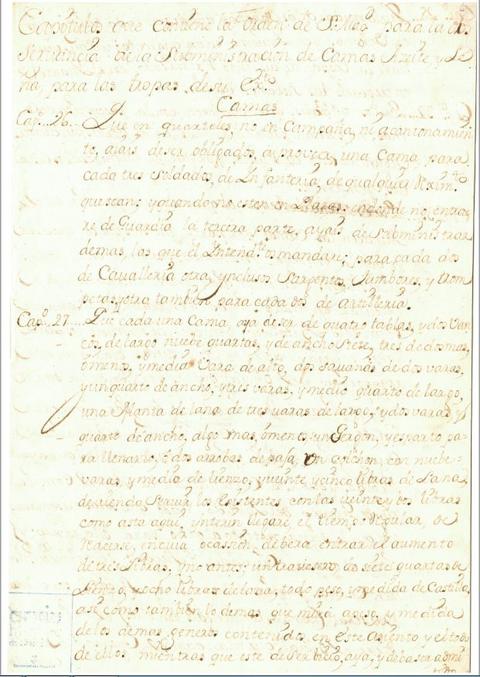 Capitulos que contiene la orden de S. Mag. para la ob
servancia de la Subministración de Camas Azeite y Le
ña, para las tropas de su Exto
Camas
Cap. 26 Que en quarteles, no en Campaña, ni acantonamien
to, aiais de ser obligados, a proveer, una Cama para
cada tres Soldados, de Infanteria, de qualquier Reximto
que sean, y quando no esten en Plazas en que no entra
re de Guardia la tercera parte, ayais de Subministrar
demas, las que el Intendte mandare; para cada dos
de Cavalleria otra, ynclusos Sargentos, y tambores, y trom
petas, y otra tambien para cada dos de Artilleria.
Capo 27 Que cada una Cama, aya de ser, de quatro tablas, y dos van
cos, de largo nuebe quartas, y de ancho siete, tres dedos mas,
ó menos, y media Vara de alto, dos savanas de dos varas,
y un quarto de ancho, y tres varas, y medio quarto de largo,
una Manta de lana de tres varas de largo, y dos varas y
quarto de ancho, algo mas, ó menos, un Gergon, y esparto pa
ra llenarlo, ó dos arrobas de paja, Un colchon, con nuebe
varas, y media de lienzo, y veinte y cinco libras de Lana,
deviendo servir los Existentes con las veinte y dos libras
como asta aqui, ynterin llegare el tiempo Regular, de
Hacerse, en cuia ocassion, debera entrar el aumento
de tres libras, y no antes; un traviesero, de siete quartas de
Lienzo, y ocho libras de lana, todo peso, y medida de Castilla,
asi como tambien lo demas que mira a peso, y medida
de los demas generos contenidos, en este Asiento y el todo
de ellos, mientras que este de Servicio, aya, y deba ser admi